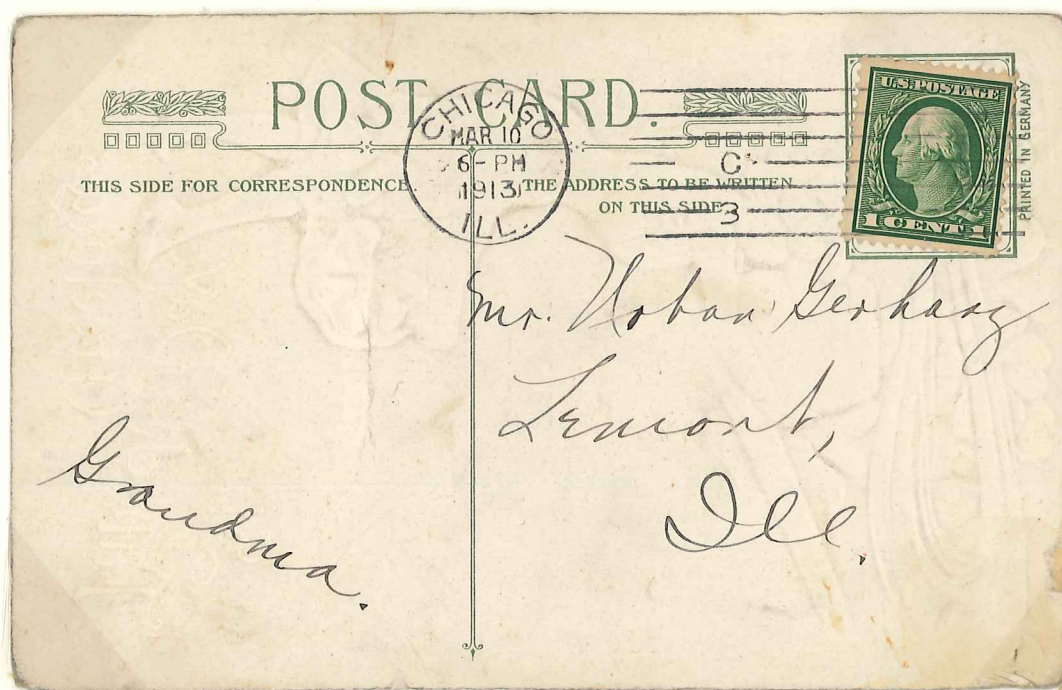 POST CARD.
CHICAGO
MAR 10
6-PM
1913
ILL.
C
3
U.S. POSTAGE
1 CENT 1
PRINTED IN GERMANY
THIS SIDE FOR CORRESPONDENCE.
THE ADDRESS TO BE WRITTEN
ON THIS SIDE
Mr. Urban Gerharz
Lemont,
Ill.
Grandma.